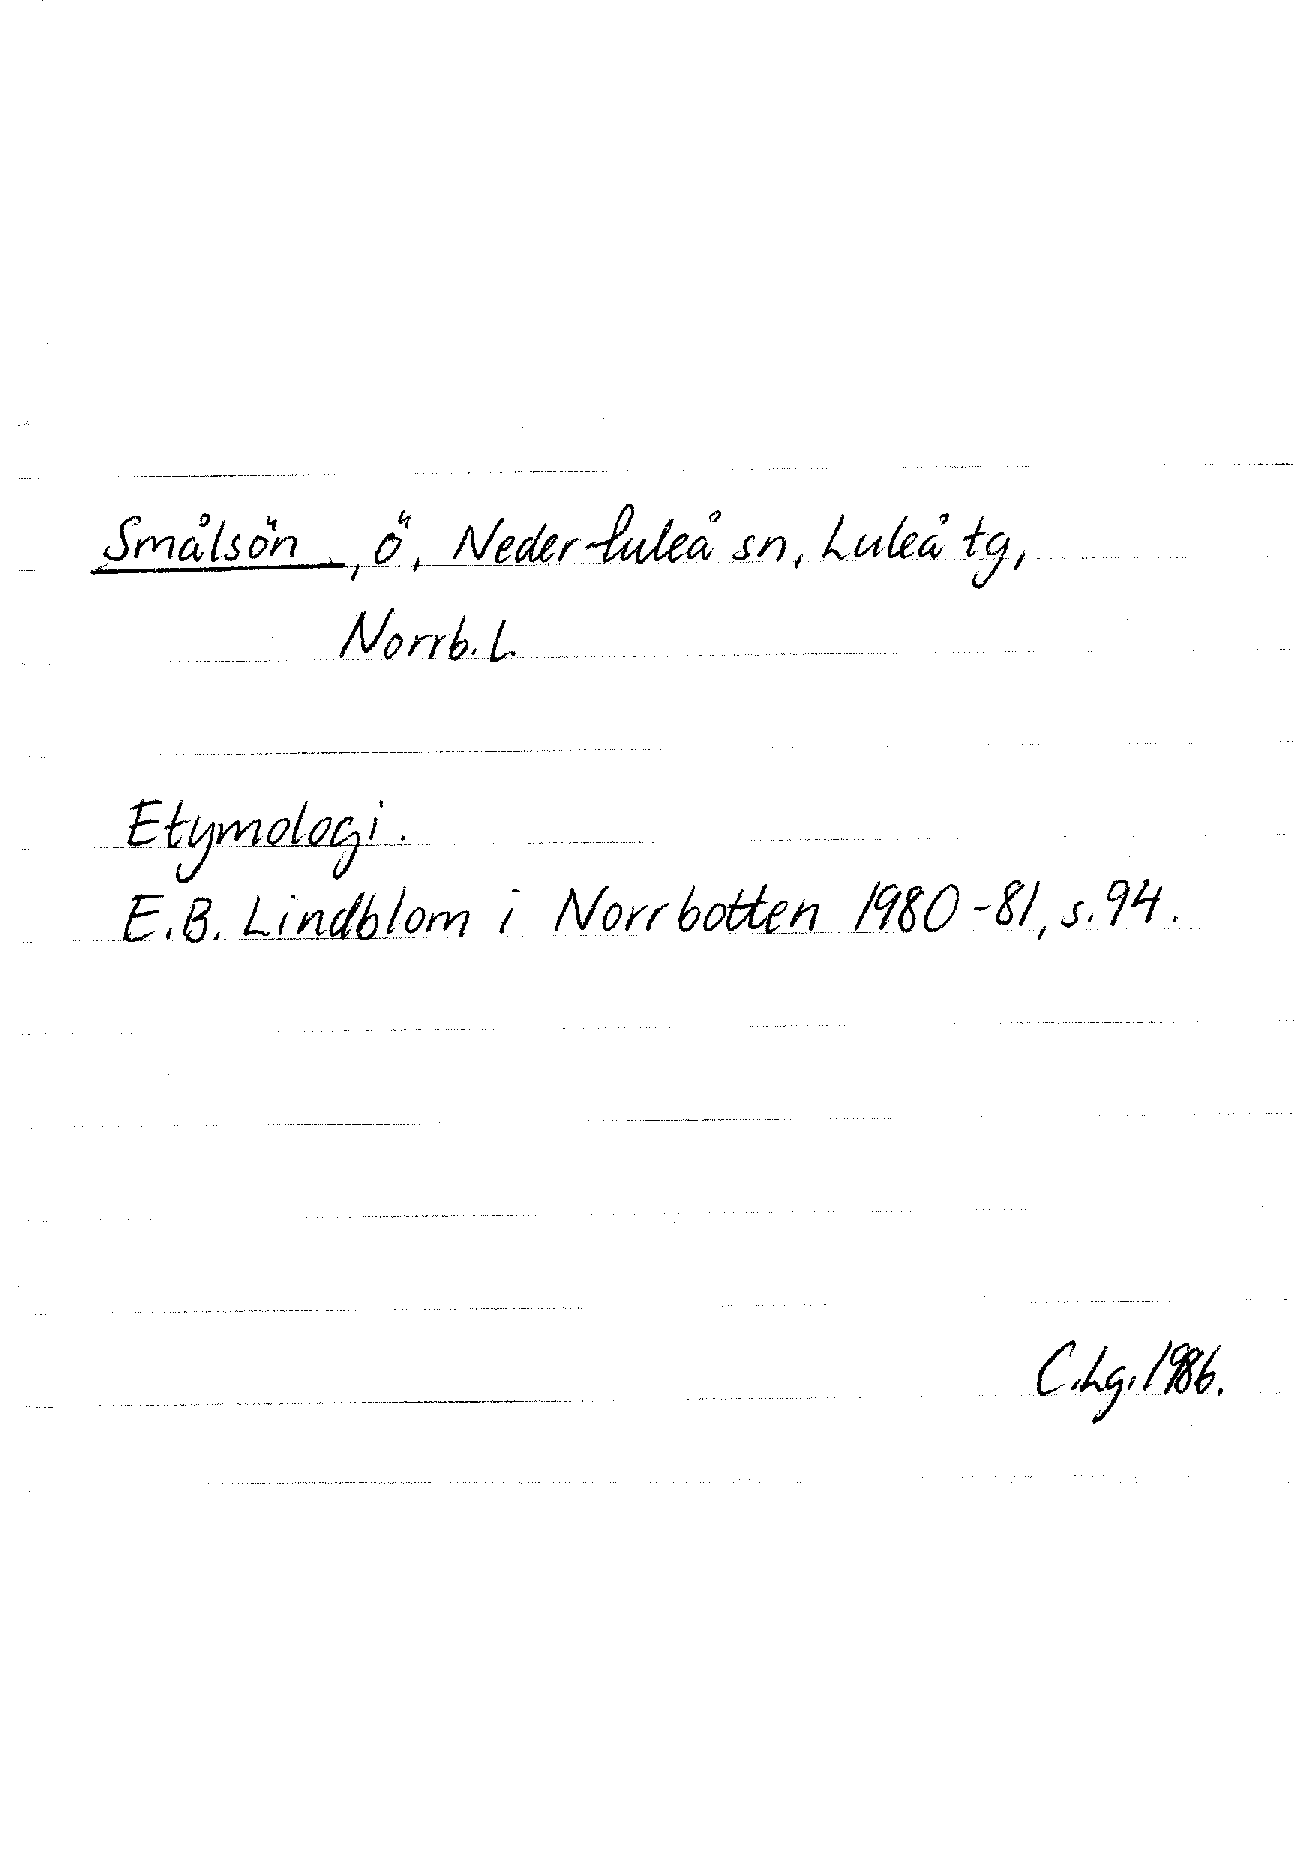 Smålsön, ö, Neder-luleå sn, Luleå tg,
Norrb. l.
Etymologi.
E.B. Lindblom i Norrbotten 1980-81, s. 94.
C.Lg. 1986.